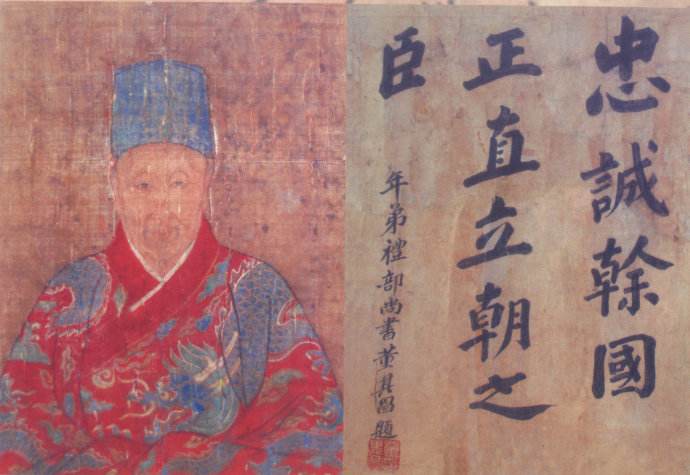 忠誠榦國
正直立朝之
臣
年弟禮部尚書董其昌題